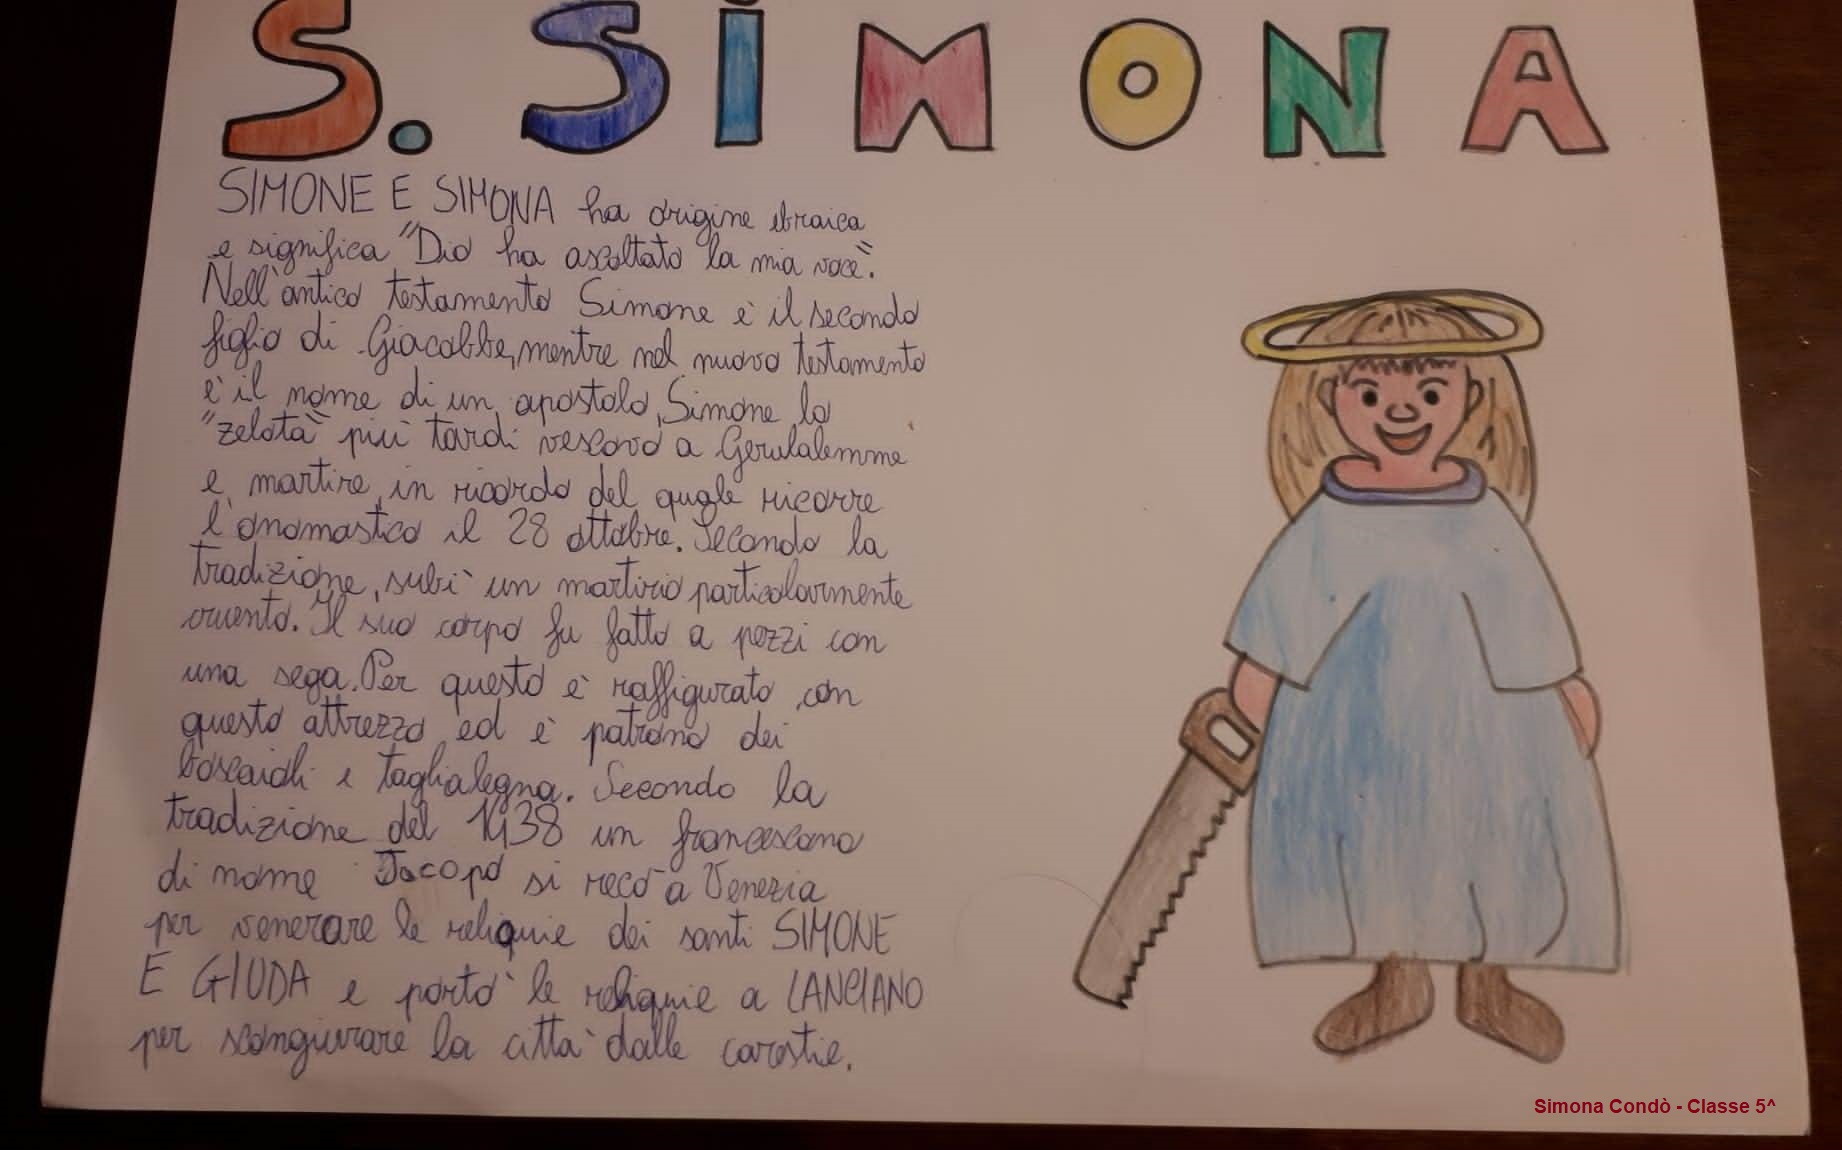 S. SIMONA
SIMONE E SIMONA ha origine ebraica
e significa "Dio ha ascoltato la mia voce".
Nell'antico testamento Simone è il secondo
figlio di Giacobbe, mentre nel nuovo testamento
è il nome di un apostolo, Simone lo
"zelota" più tardi vescovo a Gerulalemme
e martire, in ricordo del quale ricorre
l'onomastico il 28 ottobre. Secondo la
tradizione, subì un martirio particolarmente
cruento. Il suo corpo fu fatto a pezzi con
una sega. Per questo è raffigurato con
questo attrezzo ed è patrono dei
boscaioli e taglialegna. Secondo la
tradizione del 1438 un francescano
di nome Jacopo si recò a Venezia
per venerare le reliquie dei santi SIMONE
E GIUDA e portò le reliquie a LANCIANO
per scongiurare la città dalle carestie.
Simona Condò - Classe 5^